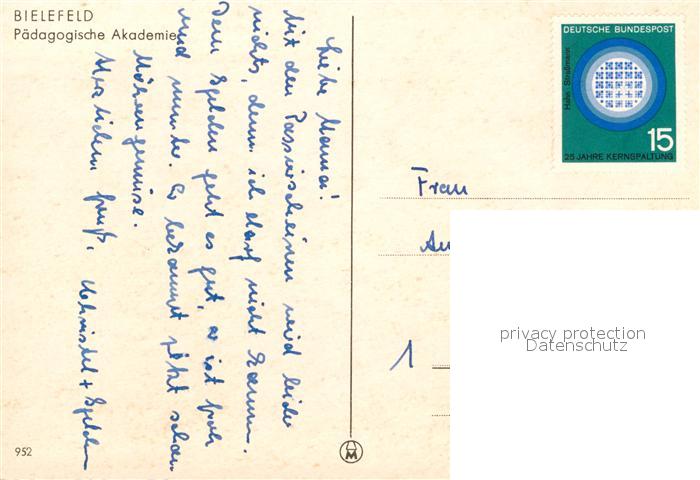 BIELEFELD
Pädagogische Akademie
Liebe Mama!
Mit den Passierscheinen wird leider
nichts, denn ich darf nicht kommen.
Dem geht es gut, er ist froh
und munter. Er bekommt jetzt schon
Möhrengemüse.
Herzlichen Gruß,
952
DEUTSCHE BUNDESPOST
Hahn Straßmann
15
25 JAHRE KERNSPALTUNG
Frau
1
privacy protection
Datenschutz